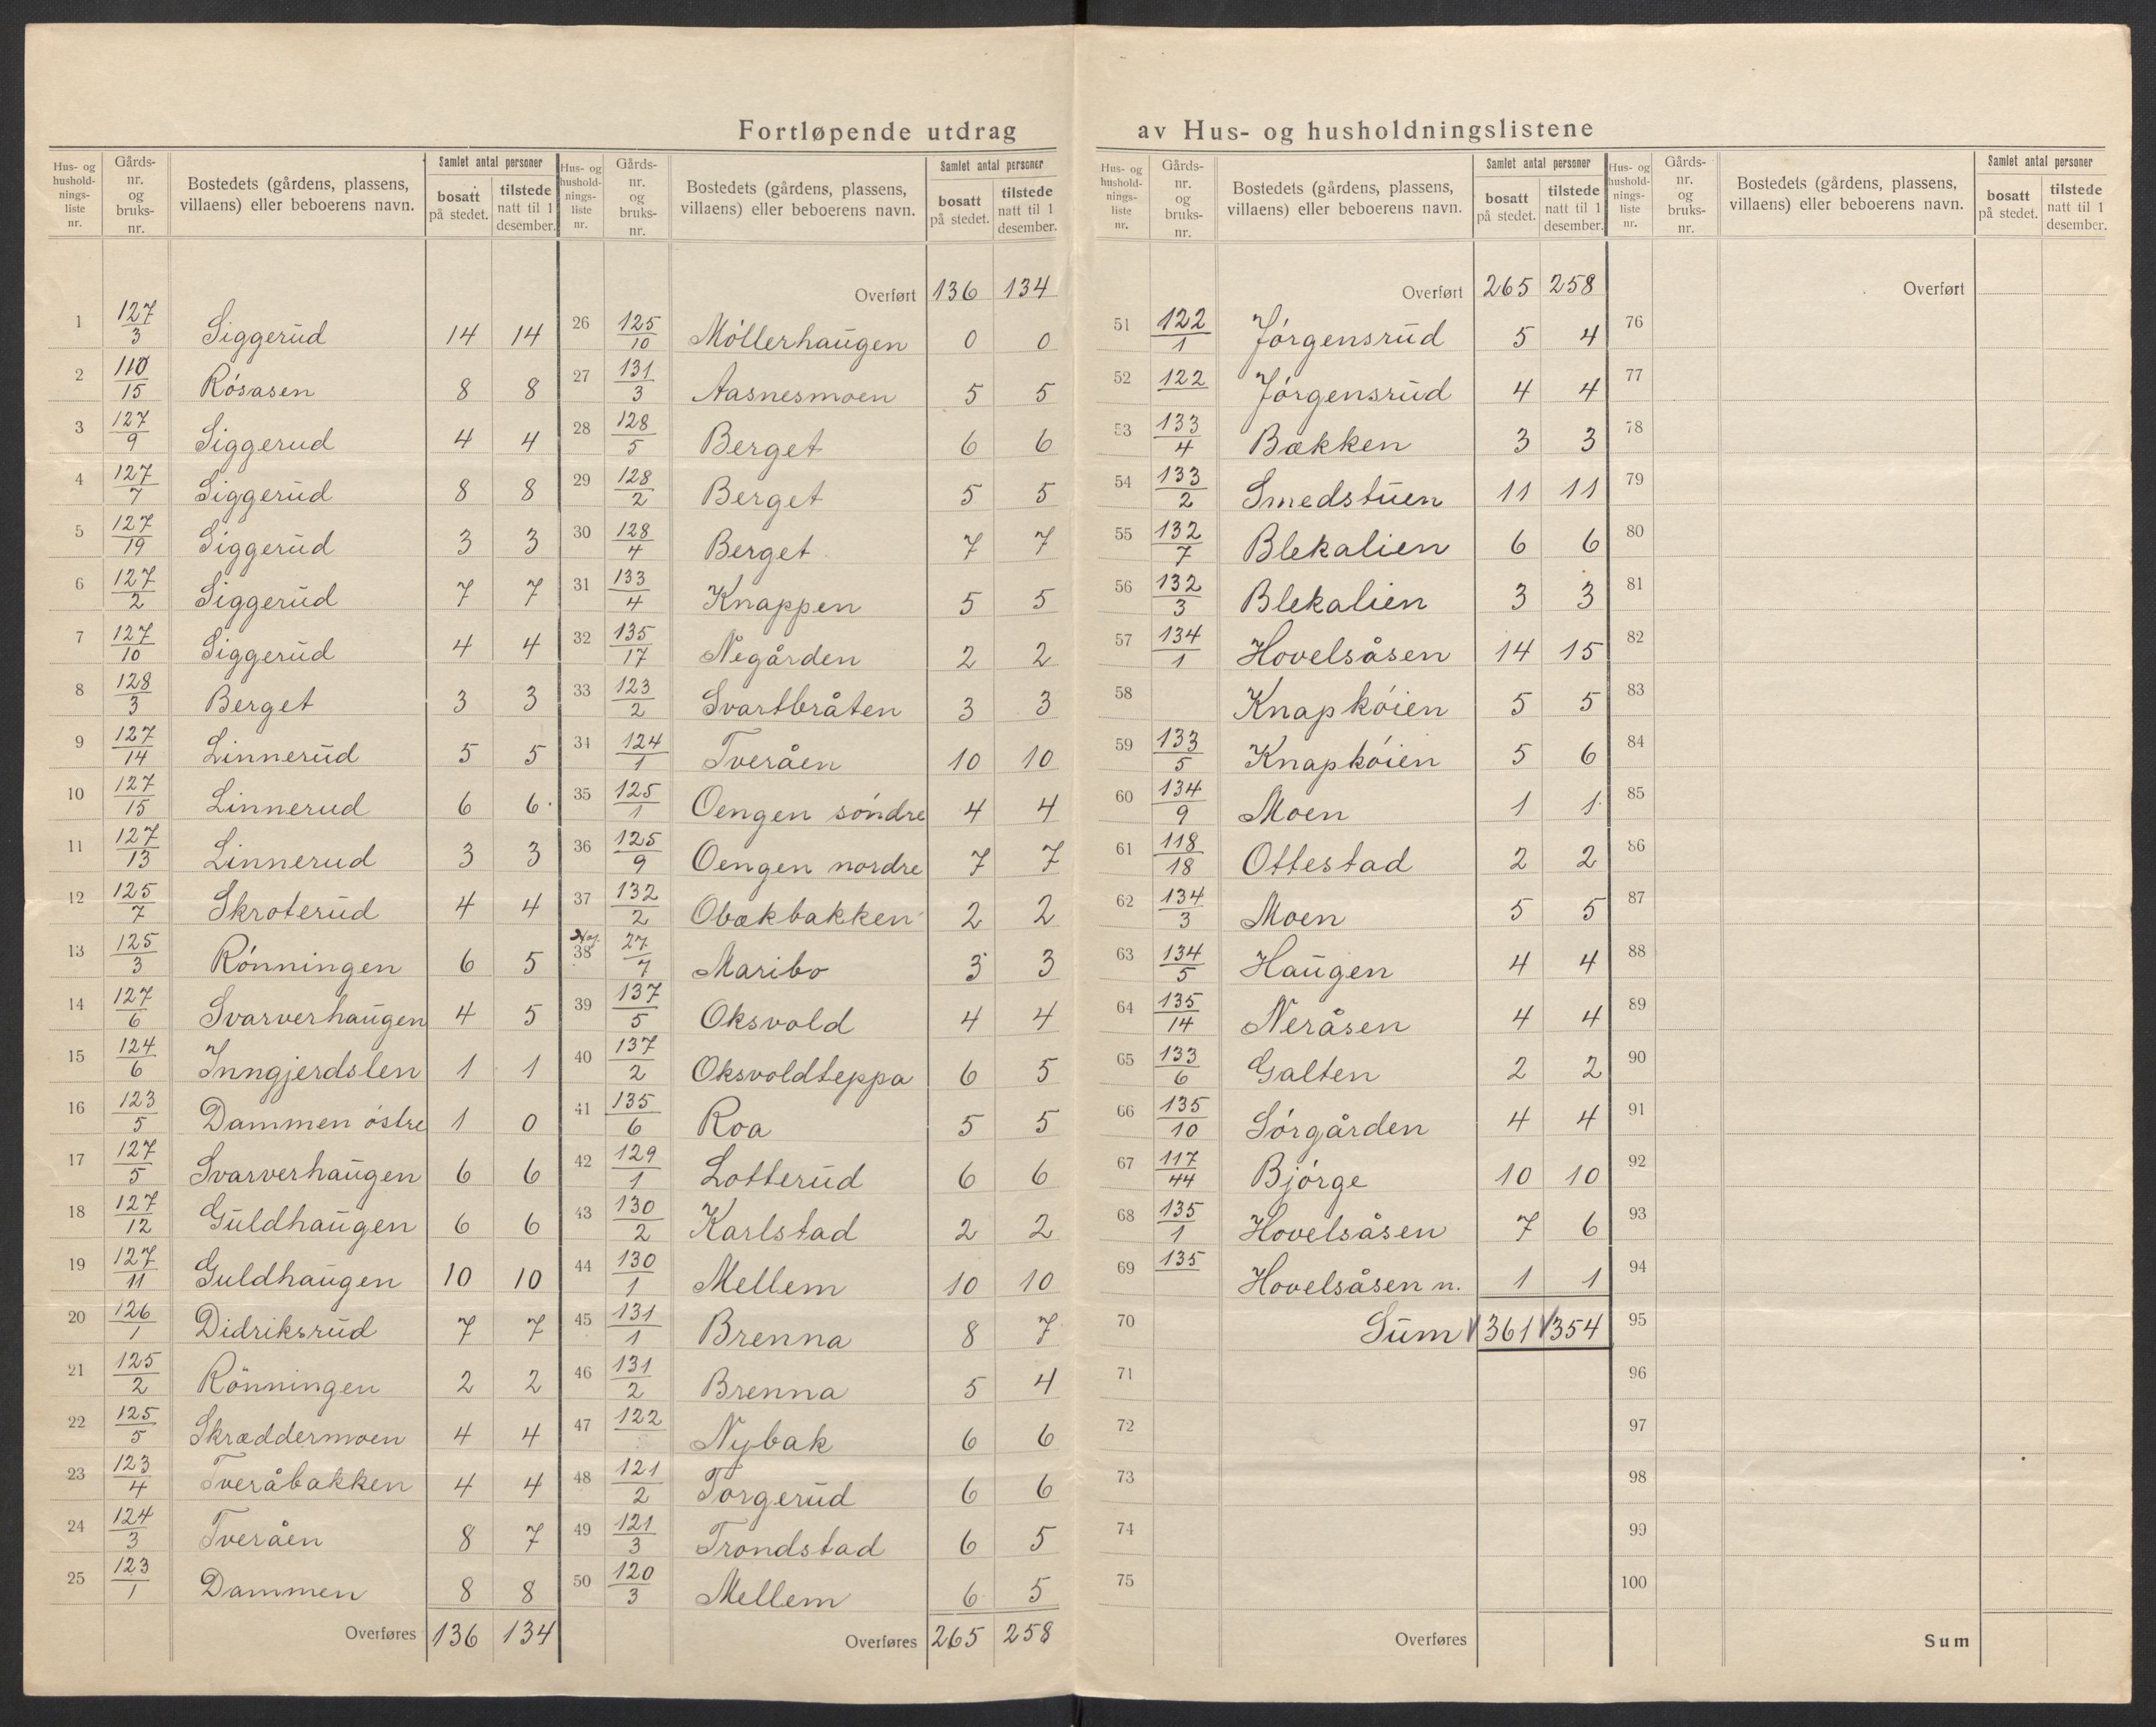 Fortløpende utdrag av Hus- og husholdningslistene
Hus- og hushold-nings-liste nr. Gårds-nr. og bruks-nr. Bostedets (gårdens, plassens, villaens) eller beboerens navn. Samlet antal personer bosatt på stedet. tilstede natt til 1 desember.
1 127/3 Siggerud 14 14
2 110/15 Rósasen 8 8
3 127/9 Siggerud 4 4
4 127/7 Siggerud 8 8
5 127/19 Siggerud 3 3
6 127/2 Siggerud 7 7
7 127/10 Siggerud 4 4
8 128/3 Berget 3 3
9 127/14 Linnerud 5 5
10 127/15 Linnerud 6 6
11 127/13 Linnerud 3 3
12 125/7 Skroterud 4 4
13 125/3 Rónningen 6 5
14 127/6 Svarverhaugen 4 5
15 124/6 Inngjerdslen 1 1
16 123/5 Dammen óstre 1 0
17 127/5 Svarverhaugen 6 6
18 127/12 Guldhaugen 6 6
19 127/11 Guldhaugen 10 10
20 126/1 Didriksrud 7 7
21 125/2 Rönningen 2 2
22 125/5 Skræddermoen 4 4
23 123/4 Tveråbakken 4 4
24 124/3 Tveråen 8 7
25 123/1 Dammen 8 8
Overføres 136 134
Hus- og hushold-nings-liste nr. Gårds-nr. og bruks-nr. Bostedets (gårdens, plassens, villaens) eller beboerens navn. Samlet antal personer bosatt på stedet. tilstede natt til 1 desember.
Overført 136 134
26 125/10 Móllerhaugen 0 0
27 131/3 Aasnesmoen 5 5
28 128/5 Berget 6 6
29 128/2 Berget 5 5
30 128/4 Berget 7 7
31 133/4 Knappen 5 5
32 135/17 Negården 2 2
33 123/2 Svartbråten 3 3
34 124/1 Tveråen 10 10
35 125/1 Oengen sóndre 4 4
36 125/9 Oengen nordre 7 7
37 132/2 Obækbakken 2 2
38 27/7 Maribo 3 3
39 137/5 Oksvold 4 4
40 137/2 Oksvoldteppa 6 5
41 135/6 Roa 5 5
42 129/1 Lotterud 6 6
43 130/2 Karlstad 2 2
44 130/1 Mellem 10 10
45 131/1 Brenna 8 7
46 131/2 Brenna 5 4
47 122 Nybak 6 6
48 121/2 Torgerud 6 6
49 121/3 Trondstad 6 5
50 120/3 Mellem 6 5
Overføres 265 258
Hus- og hushold-nings-liste nr. Gårds-nr. og bruks-nr. Bostedets (gårdens, plassens, villaens) eller beboerens navn. Samlet antal personer bosatt på stedet. tilstede natt til 1 desember.
Overført 265 258
51 122/1 Jórgensrud 5 4
52 122 Jórgensrud 4 4
53 133/4 Bækken 3 3
54 133/2 Smedstuen 11 11
55 132/7 Blekalien 6 6
56 132/3 Blekalien 3 3
57 134/1 Hovelsåsen 14 15
58 Knapkóien 5 5
59 133/5 Knapkóien 5 6
60 134/9 Moen 1 1
61 118/18 Ottestad 2 2
62 134/3 Moen 5 5
63 134/5 Haugen 4 4
64 135/14 Neråsen 4 4
65 133/6 Galten 2 2
66 135/10 Sórgården 4 4
67 117/44 Bjórge 10 10
68 135/1 Hovelsåsen 7 6
69 135 Hovelsåsen n. 1 1
70 Sum 361 354
71
72
73
74
75
Overføres
Hus- og hushold-nings-liste nr. Gårds-nr. og bruks-nr. Bostedets (gårdens, plassens, villaens) eller beboerens navn. Samlet antal personer bosatt på stedet. tilstede natt til 1 desember.
Overført
76
77
78
79
80
81
82
83
84
85
86
87
88
89
90
91
92
93
94
95
96
97
98
99
100
Sum